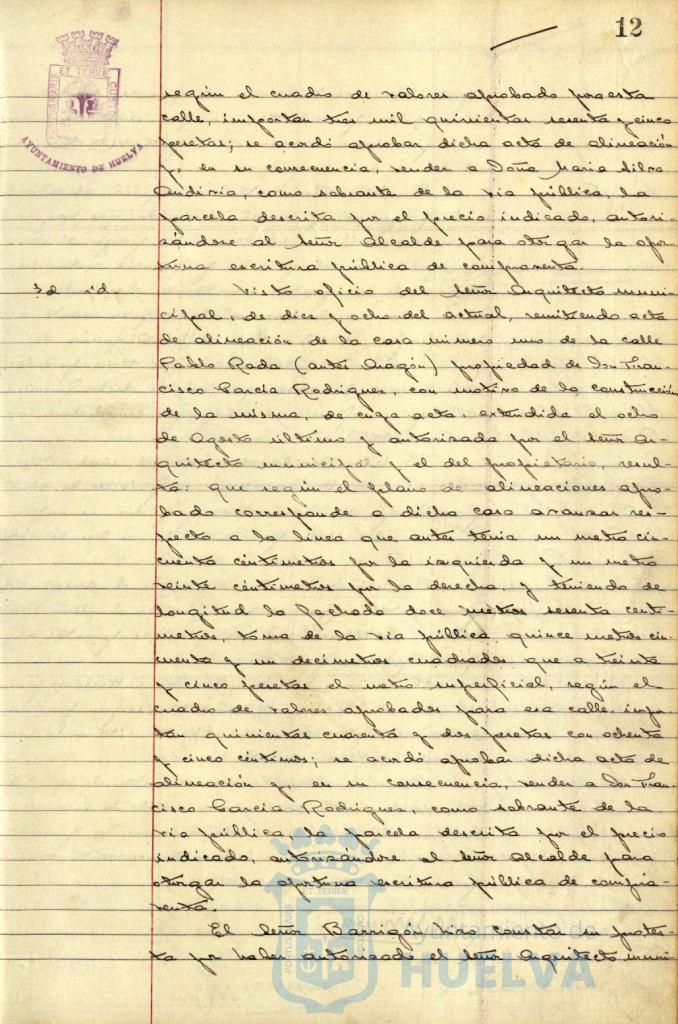 12
ET TERRÆ
AYUNTAMIENTO DE HUELVA
según el cuadro de valores aprobado para esta
calle, importan tres mil quinientas sesenta y cinco
pesetas; se acordó aprobar dicha acta de alineación
y, en su consecuencia, vender a Doña Maria Silva
como sobrante de la vía pública, la
parcela descrita por el precio indicado, autori-
zándose al Señor Alcalde para otorgar la opor-
tuna escritura pública de compraventa.
Id id. Visto oficio del Señor Arquitecto muni-
cipal, de diez y ocho del actual, remitiendo acta
de alineación de la casa número uno de la calle
Pablo Rada (antes Aragón) propiedad de Don Fran-
cisco García Rodriguez, con motivo de la construcción
de la misma, de cuya acta, extendida el ocho
de Agosto último y autorizada por el Señor Ar-
quitecto municipal y el del propietario, resul-
ta: que según el plano de alineaciones apro-
bado corresponde a dicha casa avanzar res-
pecto a la línea que antes tenía un metro cin-
cuenta céntimetros por la izquierda y un metro
veinte céntimetros por la derecha, y teniendo de
longitud la fachada doce metros sesenta centi-
metros, toma de la vía pública quince metros cin-
cuenta y un decimetros cuadrados que a treinta
y cinco pesetas el metro superficial, según el
cuadro de valores aprobados para esa calle, impor-
tan quinientas cuarenta y dos pesetas con ochenta
y cinco céntimos; se acordó aprobar dicha acta de
alineación y, en su consecuencia, vender a Don Fran-
cisco García Rodriguez, como sobrante de la
vía pública, la parcela descrita por el precio
indicado, autorizándose al Señor Alcalde para
otorgar la oportuna escritura pública de compra-
venta.
El Señor Barrigón hizo constar su protes-
ta por haber autorizado el Señor Arquitecto muni-
Ayuntamiento de
HUELVA